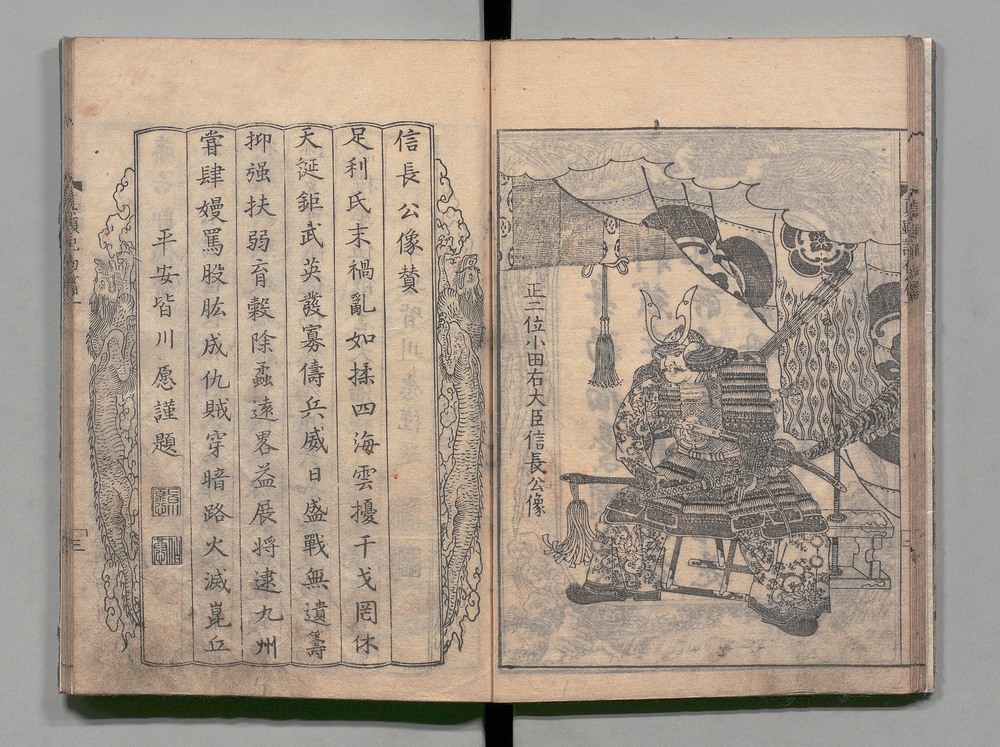 正二位小田右大臣信長公像
信長公像賛
足利氏末禍亂如揉四海雲擾干戈罔休
天誕鉅武英發寡儔兵威日盛戰無遺籌
抑强扶弱育穀除蟊遠畧益展将逮九州
嘗肆嫚罵股肱成仇賊穿暗路火滅崑丘
平安皆川愿謹題